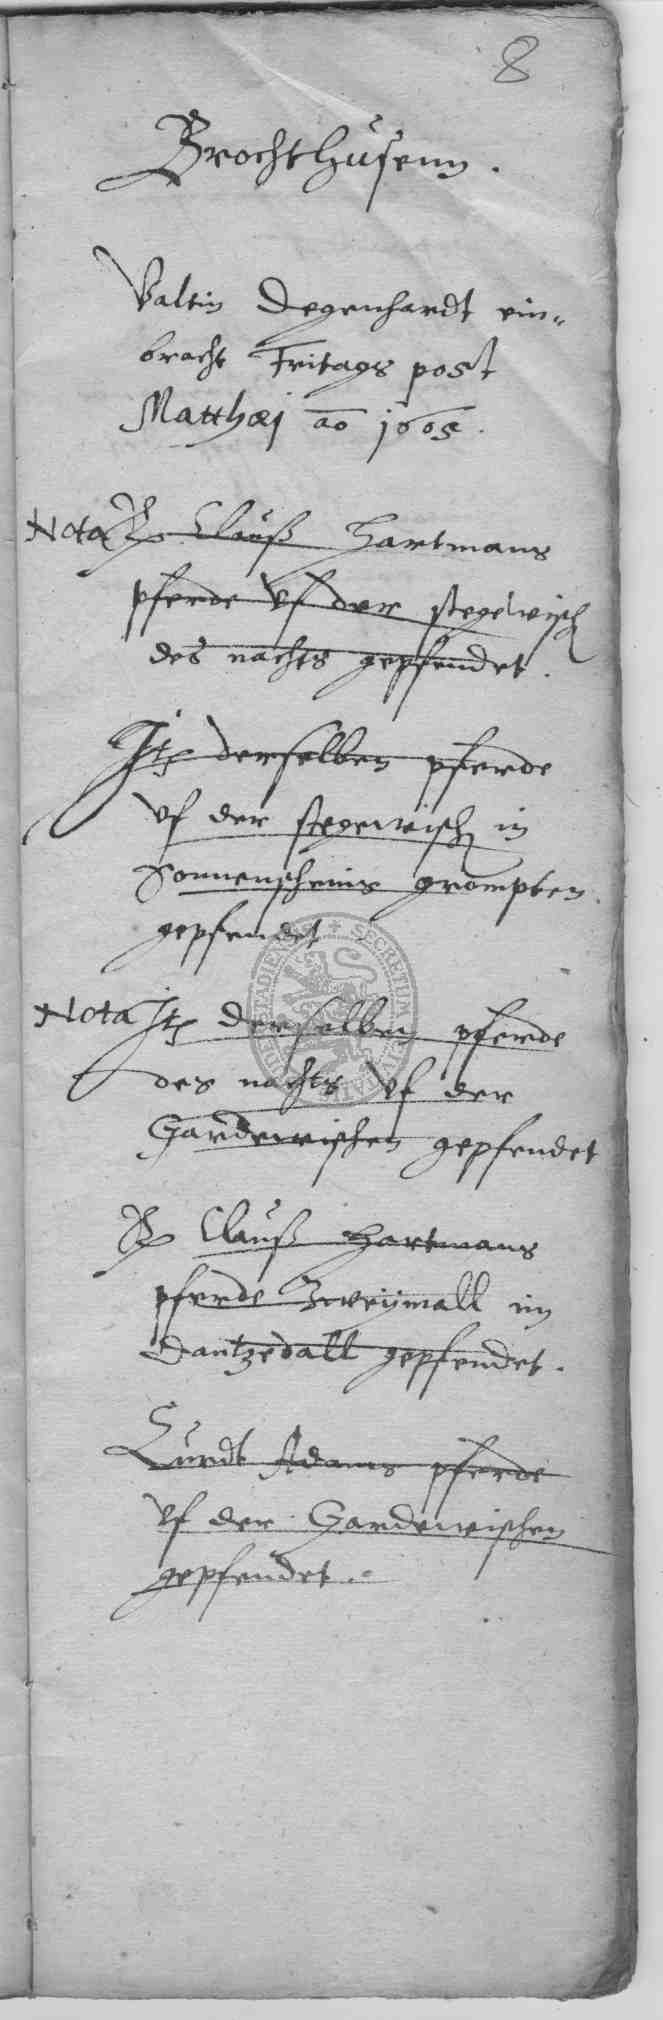 8
Brochthusenn.
Valtin Degenhardt ein„
bracht Fritags post
Matthæi ao 1605.
Nota Clauß Hartmans
pferde vf der stegewisch
des nachts gepfendet.
It derselben pferde
vf der stegewisch in
Sonnenscheins
gepfendet
Nota It derselben pferde
des nachts vf der
Gardewischen gepfendet
Clauß Hartmans
pferde Zweymall im
Dantzedall gepfendet.
Curdt Adams pferde
vf der Gardewischen
gepfendet.
SECRETUM